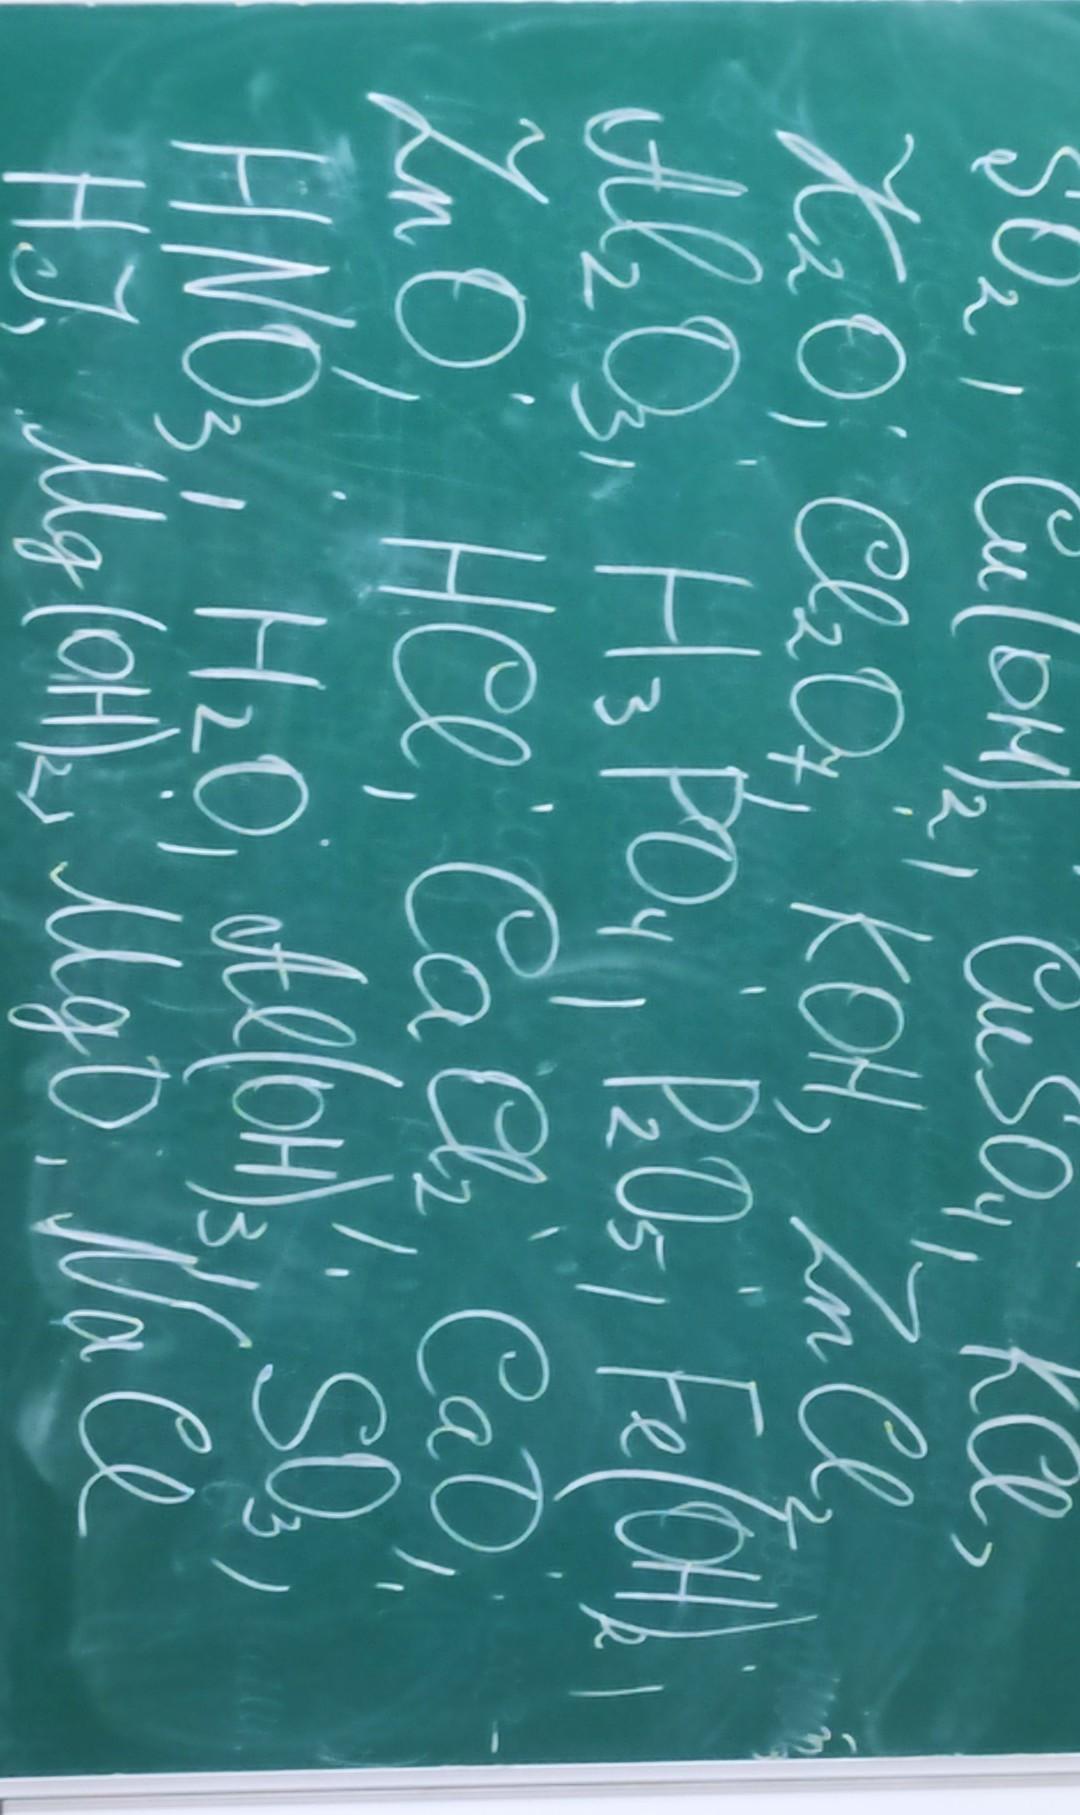 SO₂, Cu(OH)₂, CuSO₄, KCl,
K₂O, Cl₂O₇, KOH, ZnCl₂
Al₂O₃, H₃PO₄, P₂O₅, Fe(OH)₂,
ZnO, HCl, CaCl₂, CaO,
HNO₃, H₂O, Al(OH)₃, SO₃,
HJ, Mg(OH)₂, MgO, NaCl